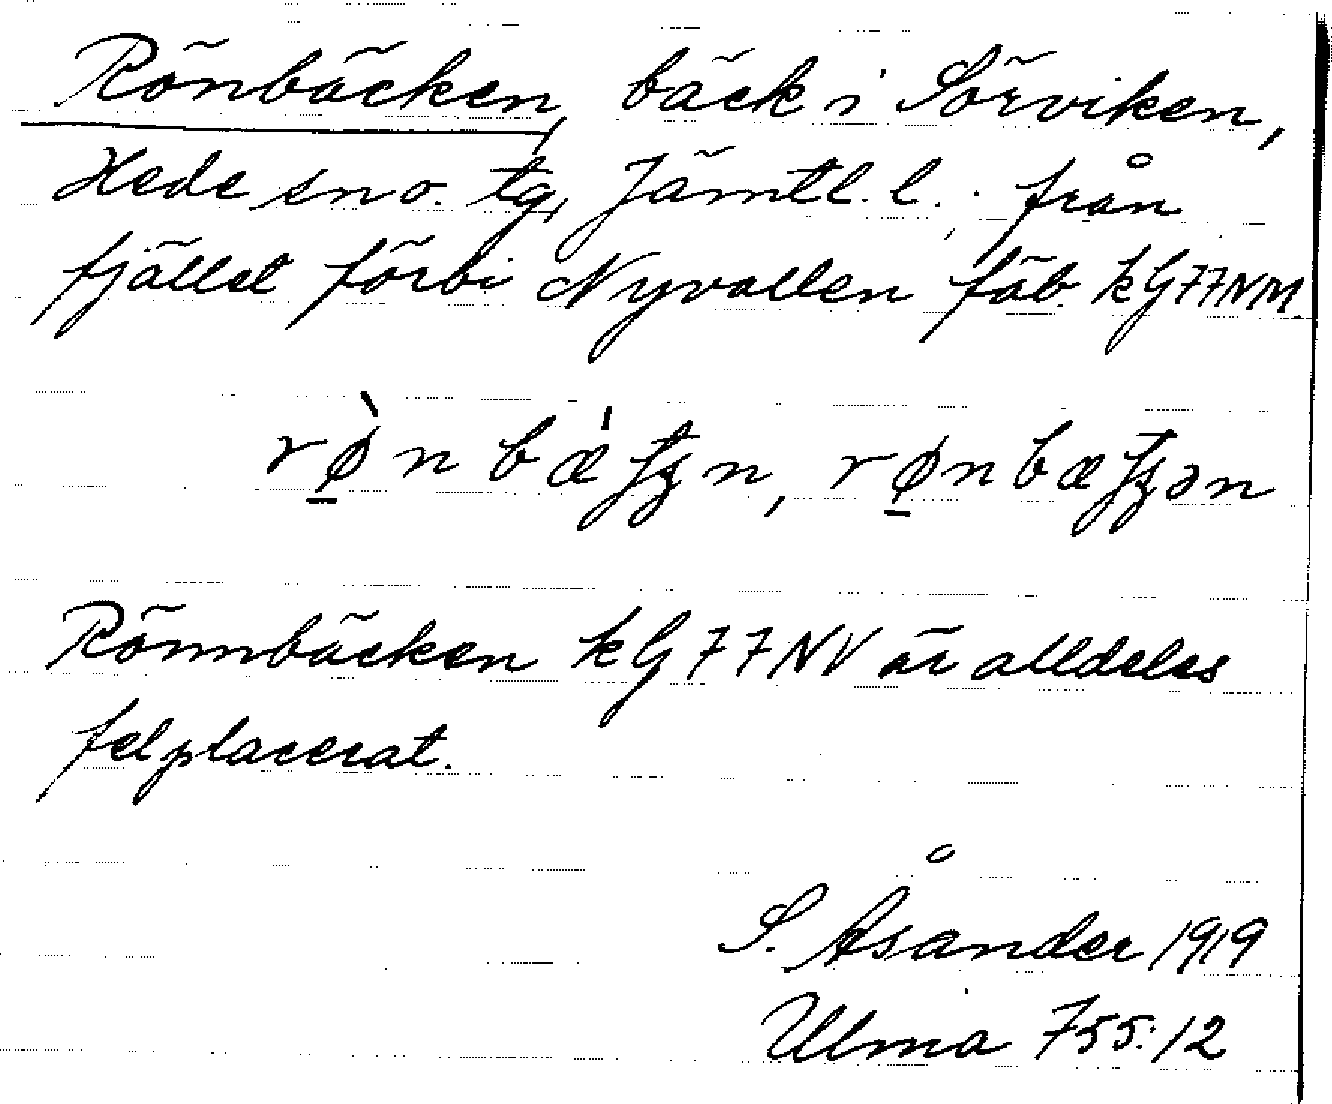 Rönbäcken, bäck i Sörviken,
Hede sn o. tg, Jämtl. l.; från
fjället förbi Nyvallen fäb. kG77NM
rø̱̀n bæ̀ʄʓn, rø̱n bæʄʓən
Rönnbäcken kG77NV är alldeles
felplacerat.
S. Åsander 1919
Ulma 755:12